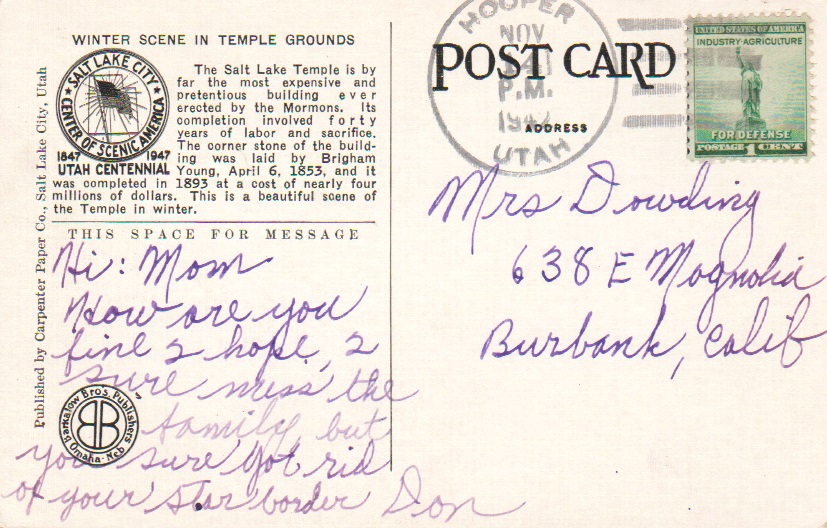 WINTER SCENE IN TEMPLE GROUNDS
SALT LAKE CITY
CENTER OF SCENIC AMERICA
1847 1947
UTAH CENTENNIAL
The Salt Lake Temple is by
far the most expensive and
pretentious building ever
erected by the Mormons. Its
completion involved forty
years of labor and sacrifice.
The corner stone of the build-
ing was laid by Brigham
Young, April 6, 1853, and it
was completed in 1893 at a cost of nearly four
millions of dollars. This is a beautiful scene of
the Temple in winter.
THIS SPACE FOR MESSAGE
Hi: Mom
How are you
fine I hope, I
sure miss the
family, but
you sure got rid
of your star border Don
Barkalow Bro's. Publishers
Omaha-Neb
BB
Published by Carpenter Paper Co., Salt Lake City, Utah
POST CARD
ADDRESS
HOOPER
NOV
P.M.
UTAH
UNITED STATES OF AMERICA
INDUSTRY-AGRICULTURE
FOR DEFENSE
POSTAGE 1 CENT
Mrs Dowding
638 E Magnolia
Burbank, Calif